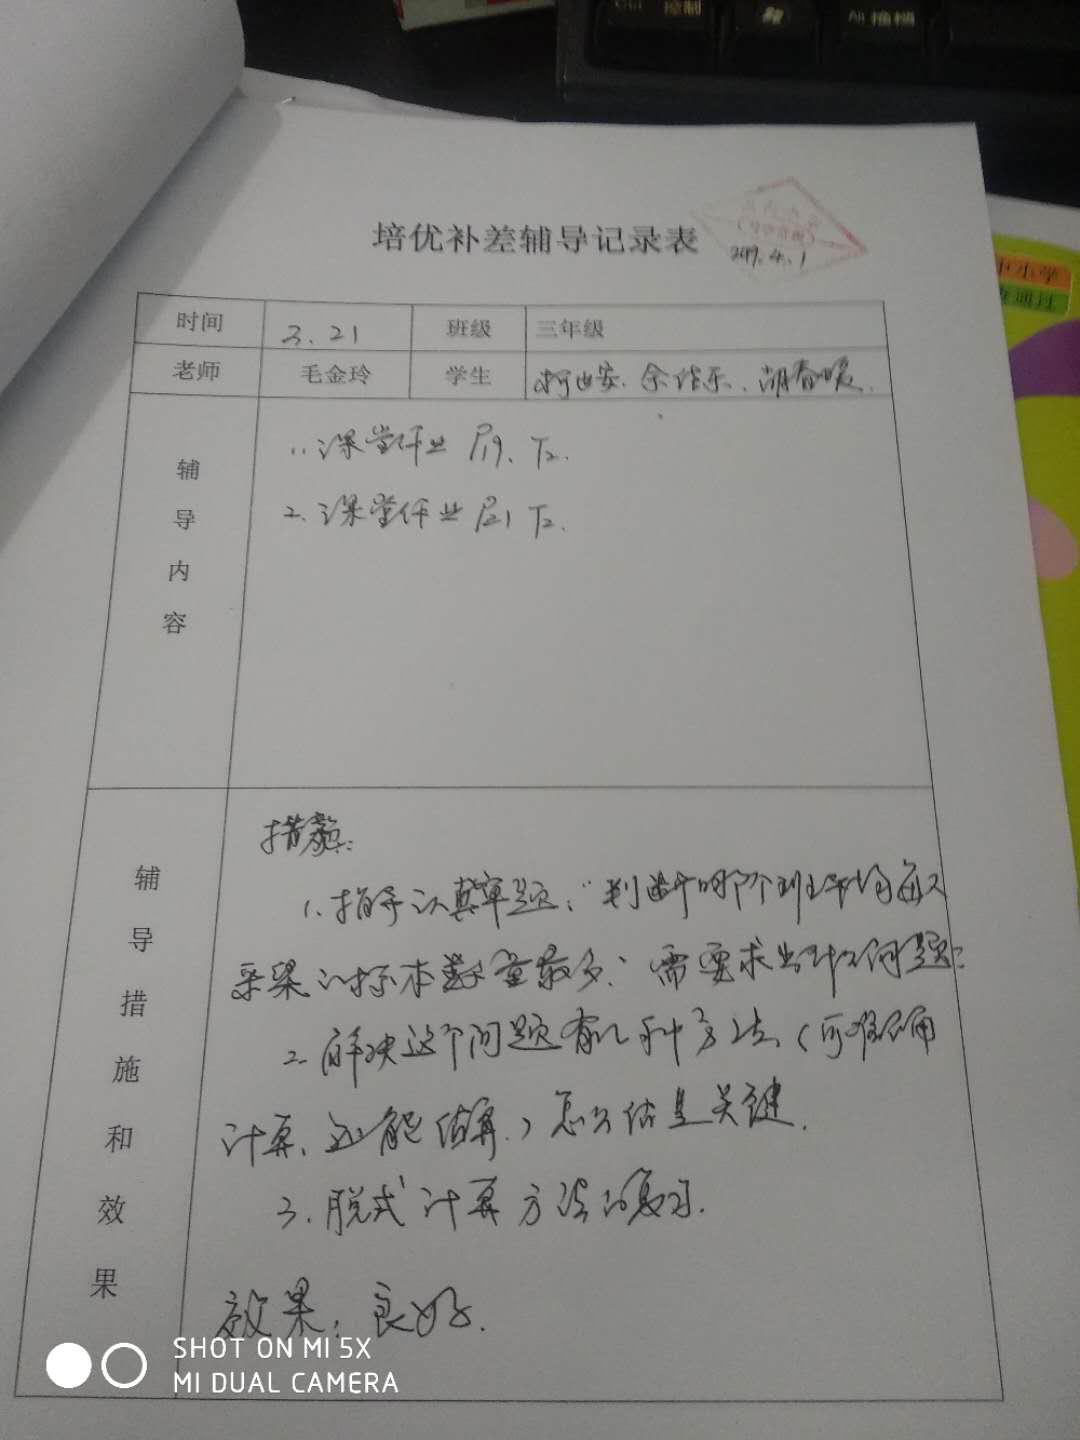 Ctrl 控制
Alt 换档
中小学
通过
培优补差辅导记录表
2019.4.1
时间 3.21 班级 三年级
老师 毛金玲 学生
辅导内容
1. 课堂作业 P19、T2.
2. 课堂作业 P21 T2.
辅导措施和效果
措施:
1. 指导认真审题:“判断哪个班平均每人
采集的标本数量最多”需要求出什么问题?
2. 解决这个问题有几种方法(可准确
计算、还能估算.)怎么估是关键.
3. 脱式计算方法的复习.
效果:良好.
SHOT ON MI 5X
MI DUAL CAMERA